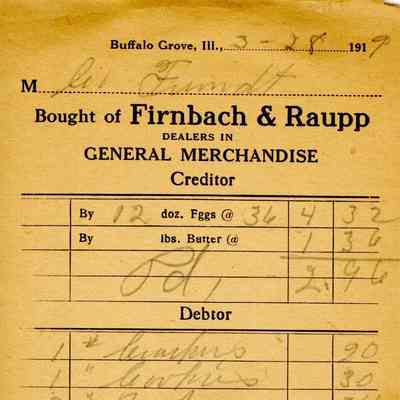 Buffalo Grove, Ill., 3-28 1919
M Fundt
Bought of Firnbach & Raupp
DEALERS IN
GENERAL MERCHANDISE
Creditor
By 12 doz. Eggs @ 36 4 32
By lbs. Butter @ 1 36
Pd, 2.96
Debtor
1 # Crackers 20
1 " Cookies 30